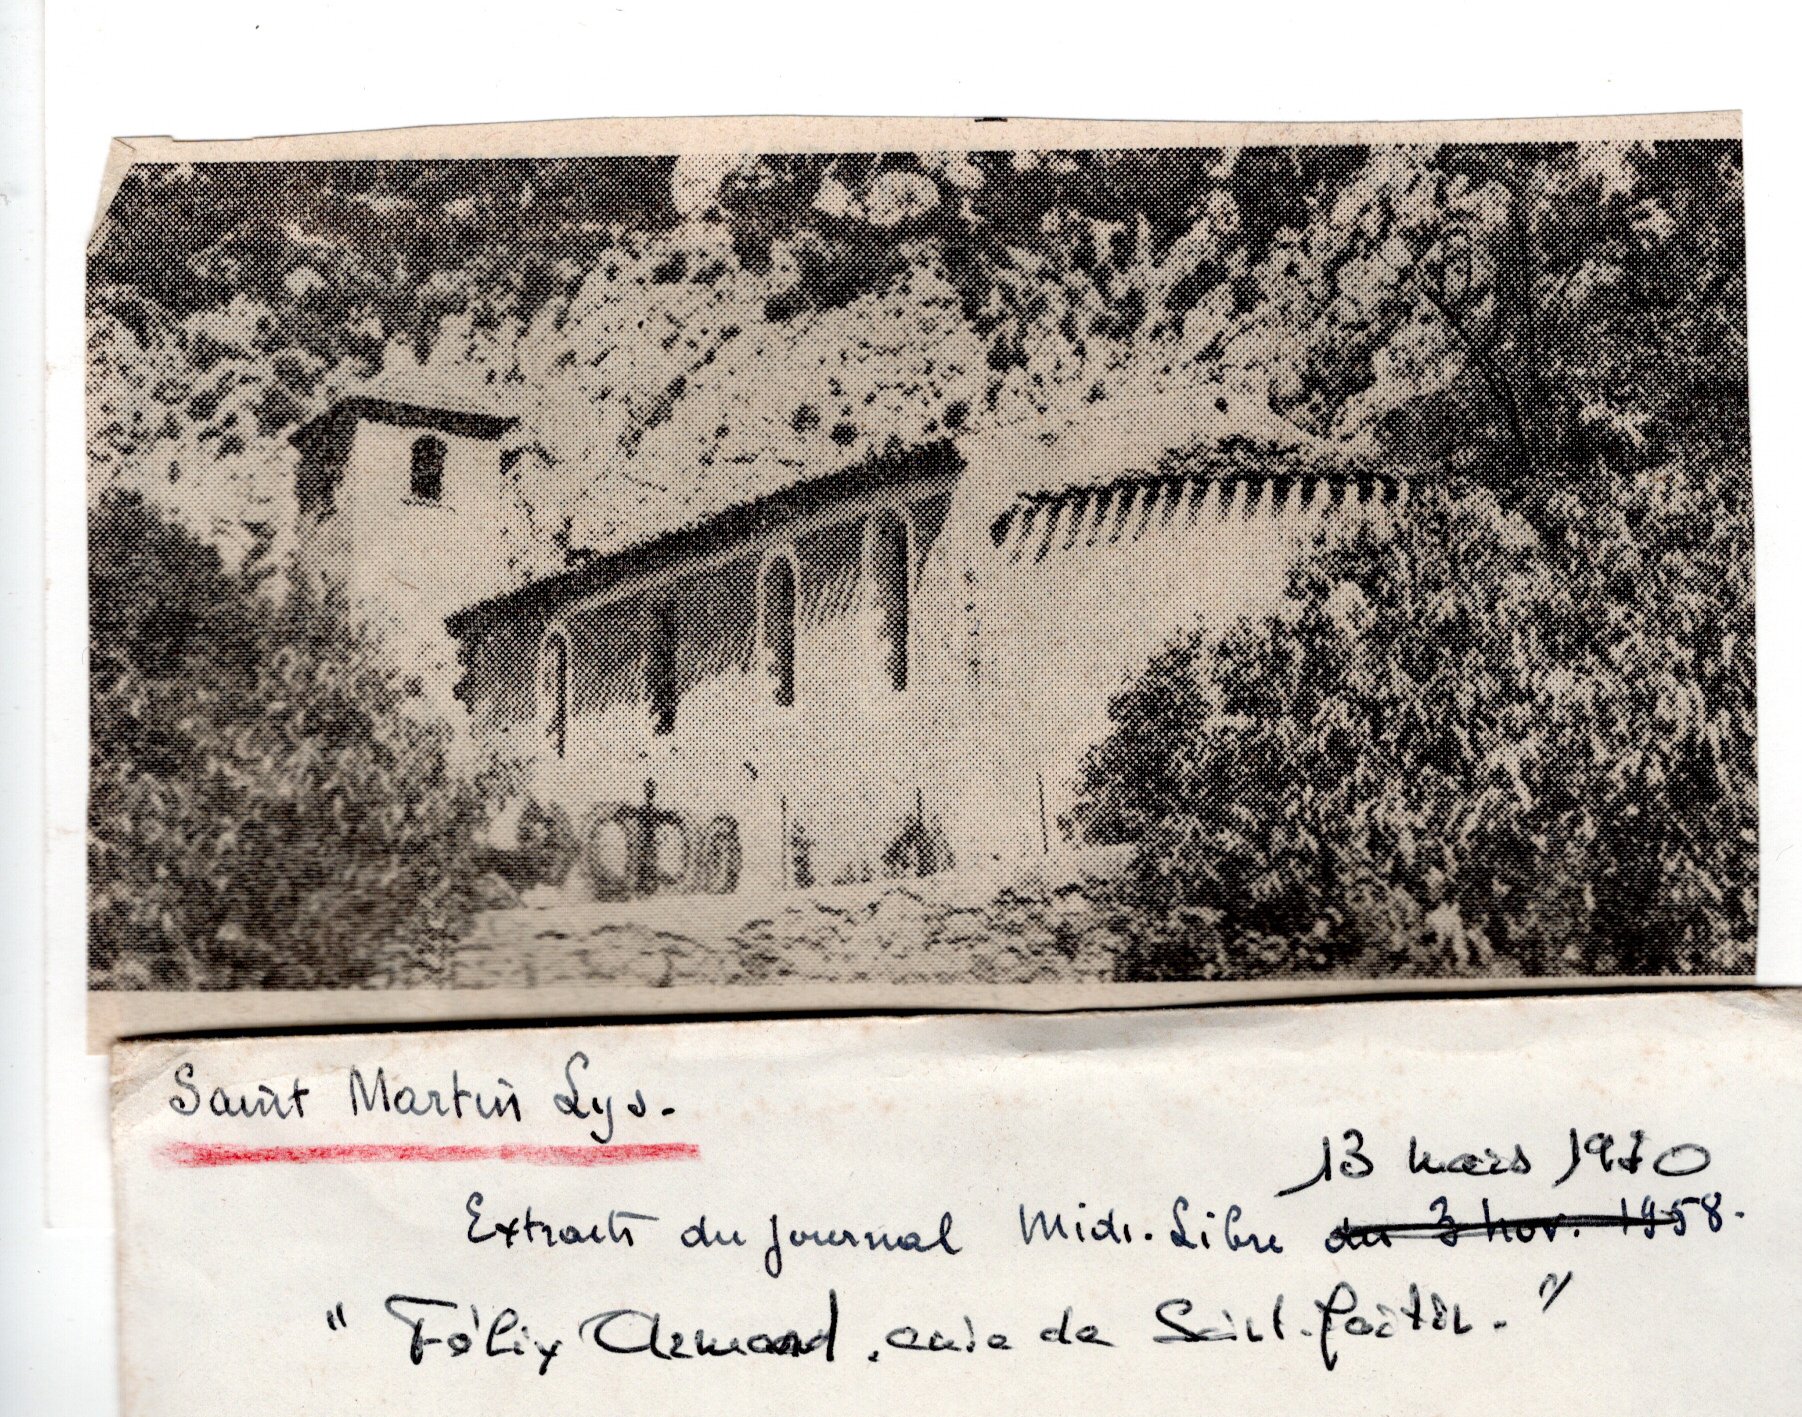 Saint Martin Lys.
13 mars 1970
Extraits du journal Midi-Libre du 3 nov. 1958.
" Félix Armand, curé de Saint-Martin. "